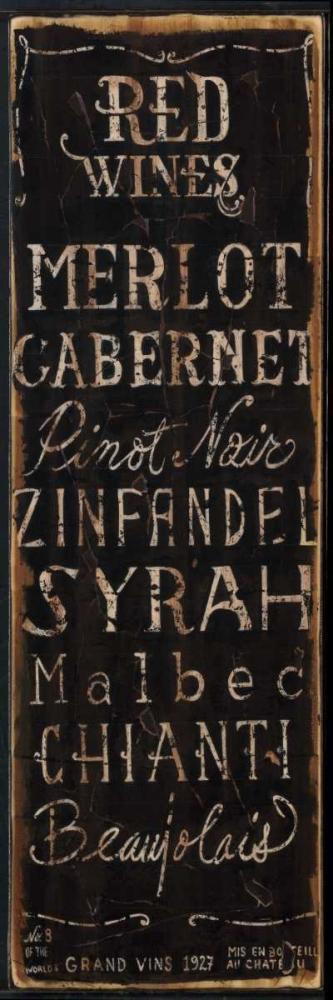 RED
WINES
MERLOT
CABERNET
Pinot Noir
ZINFANDEL
SYRAH
Malbec
CHIANTI
Beaujolais
No. 8
OF THE
WORLDS GRAND VINS 1927
MIS EN BOTEILL
AU CHATEAU